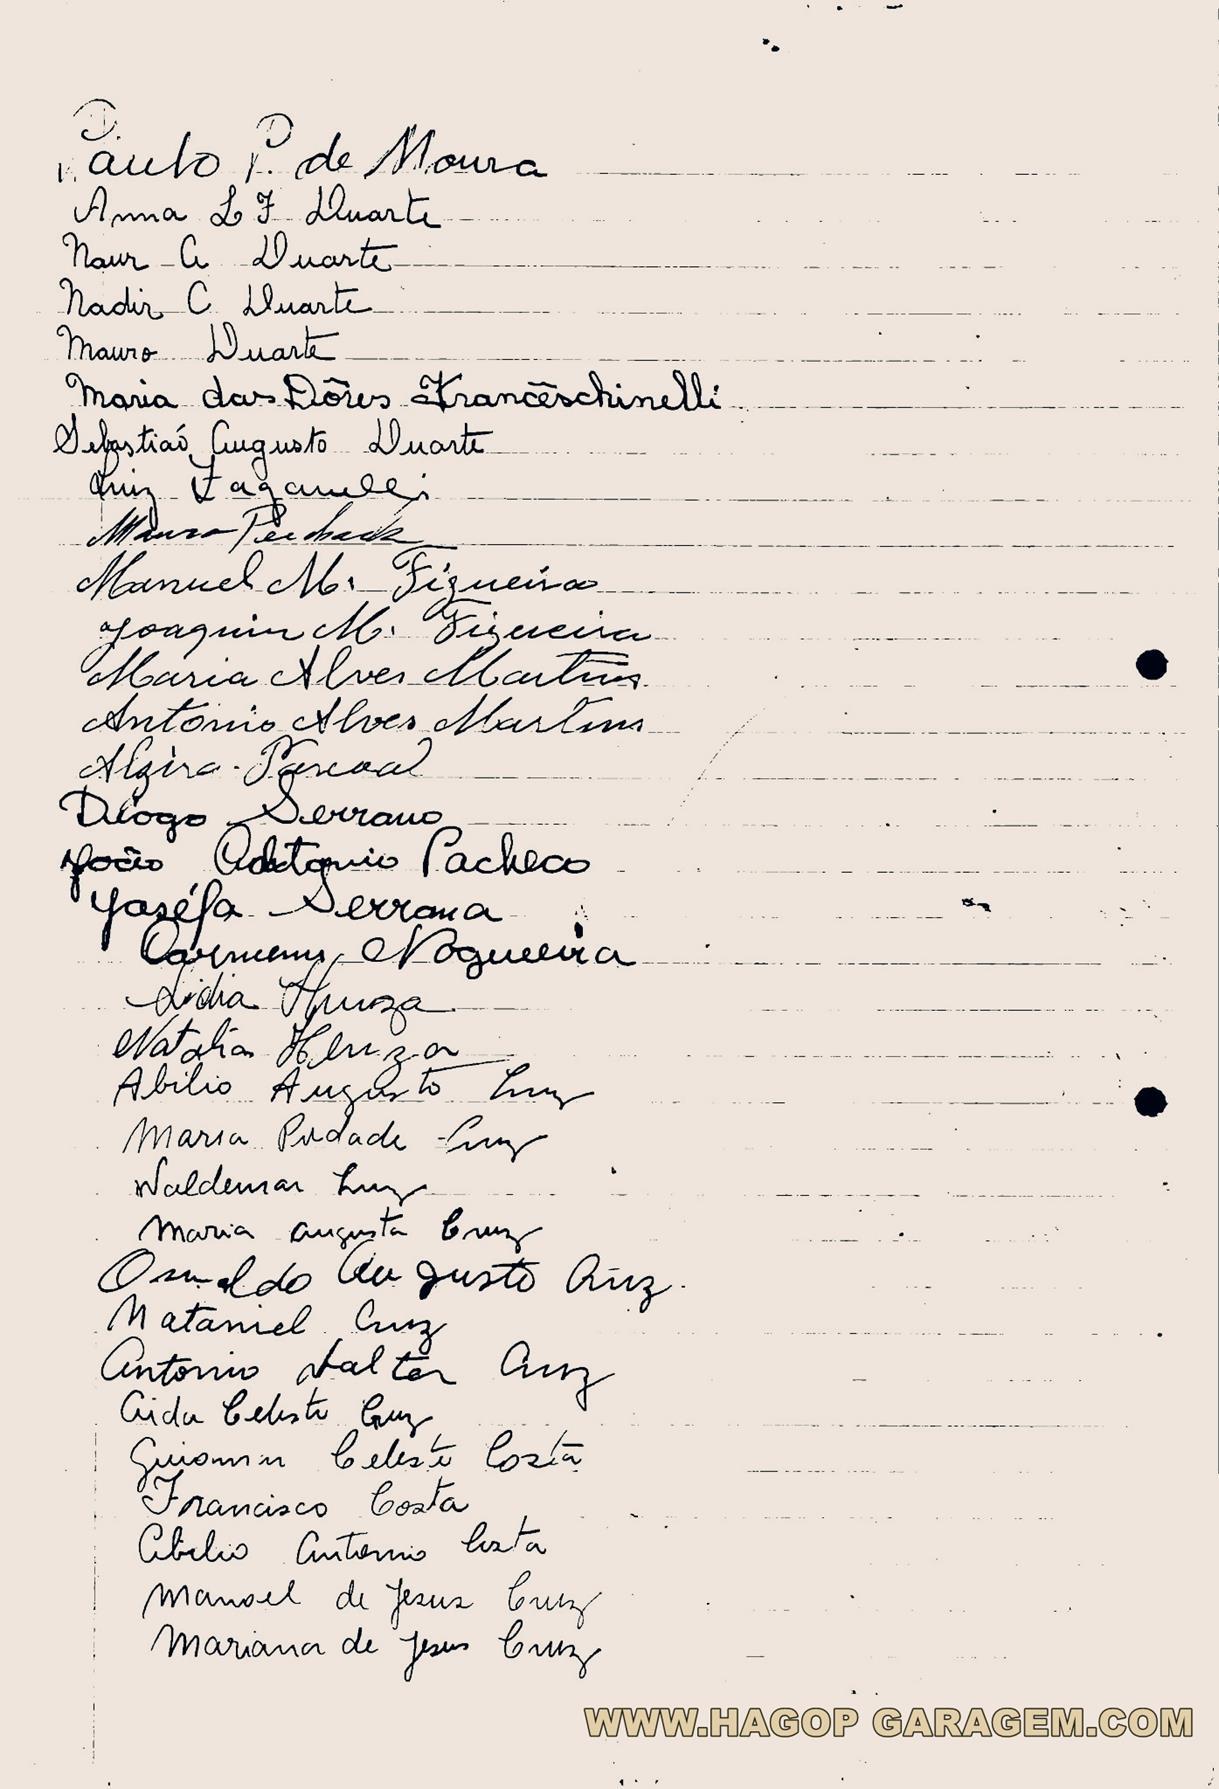 Paulo P. de Moura
Anna L F Duarte
Naur A Duarte
Nadir C Duarte
Mauro Duarte
Maria das Dôres Francêschinelli
Sebastiaó Augusto Duarte
Luiz Zaganelli
Mauro
Manuel M. Figueira
Joaquim M. Figueira
Maria Alves Martins
Antonio Alves Martins
Alzira Pascoal
Diogo Serrano
João Antonio Pacheco
Joséfa Serrana
Carmem Nogueira
Lidia
Natalia
Abilio Augusto Cruz
Maria Piedade Cruz
Waldemar Cruz
Maria Augusta Cruz
Oswaldo Augusto Cruz
Nataniel Cruz
Antonio Valter Cruz
Aida Celeste Cruz
Guiomar Celeste Costa
Francisco Costa
Abilio Antonio Costa
Manoel de Jesus Cruz
Mariana de Jesus Cruz
WWW.HAGOP GARAGEM.COM